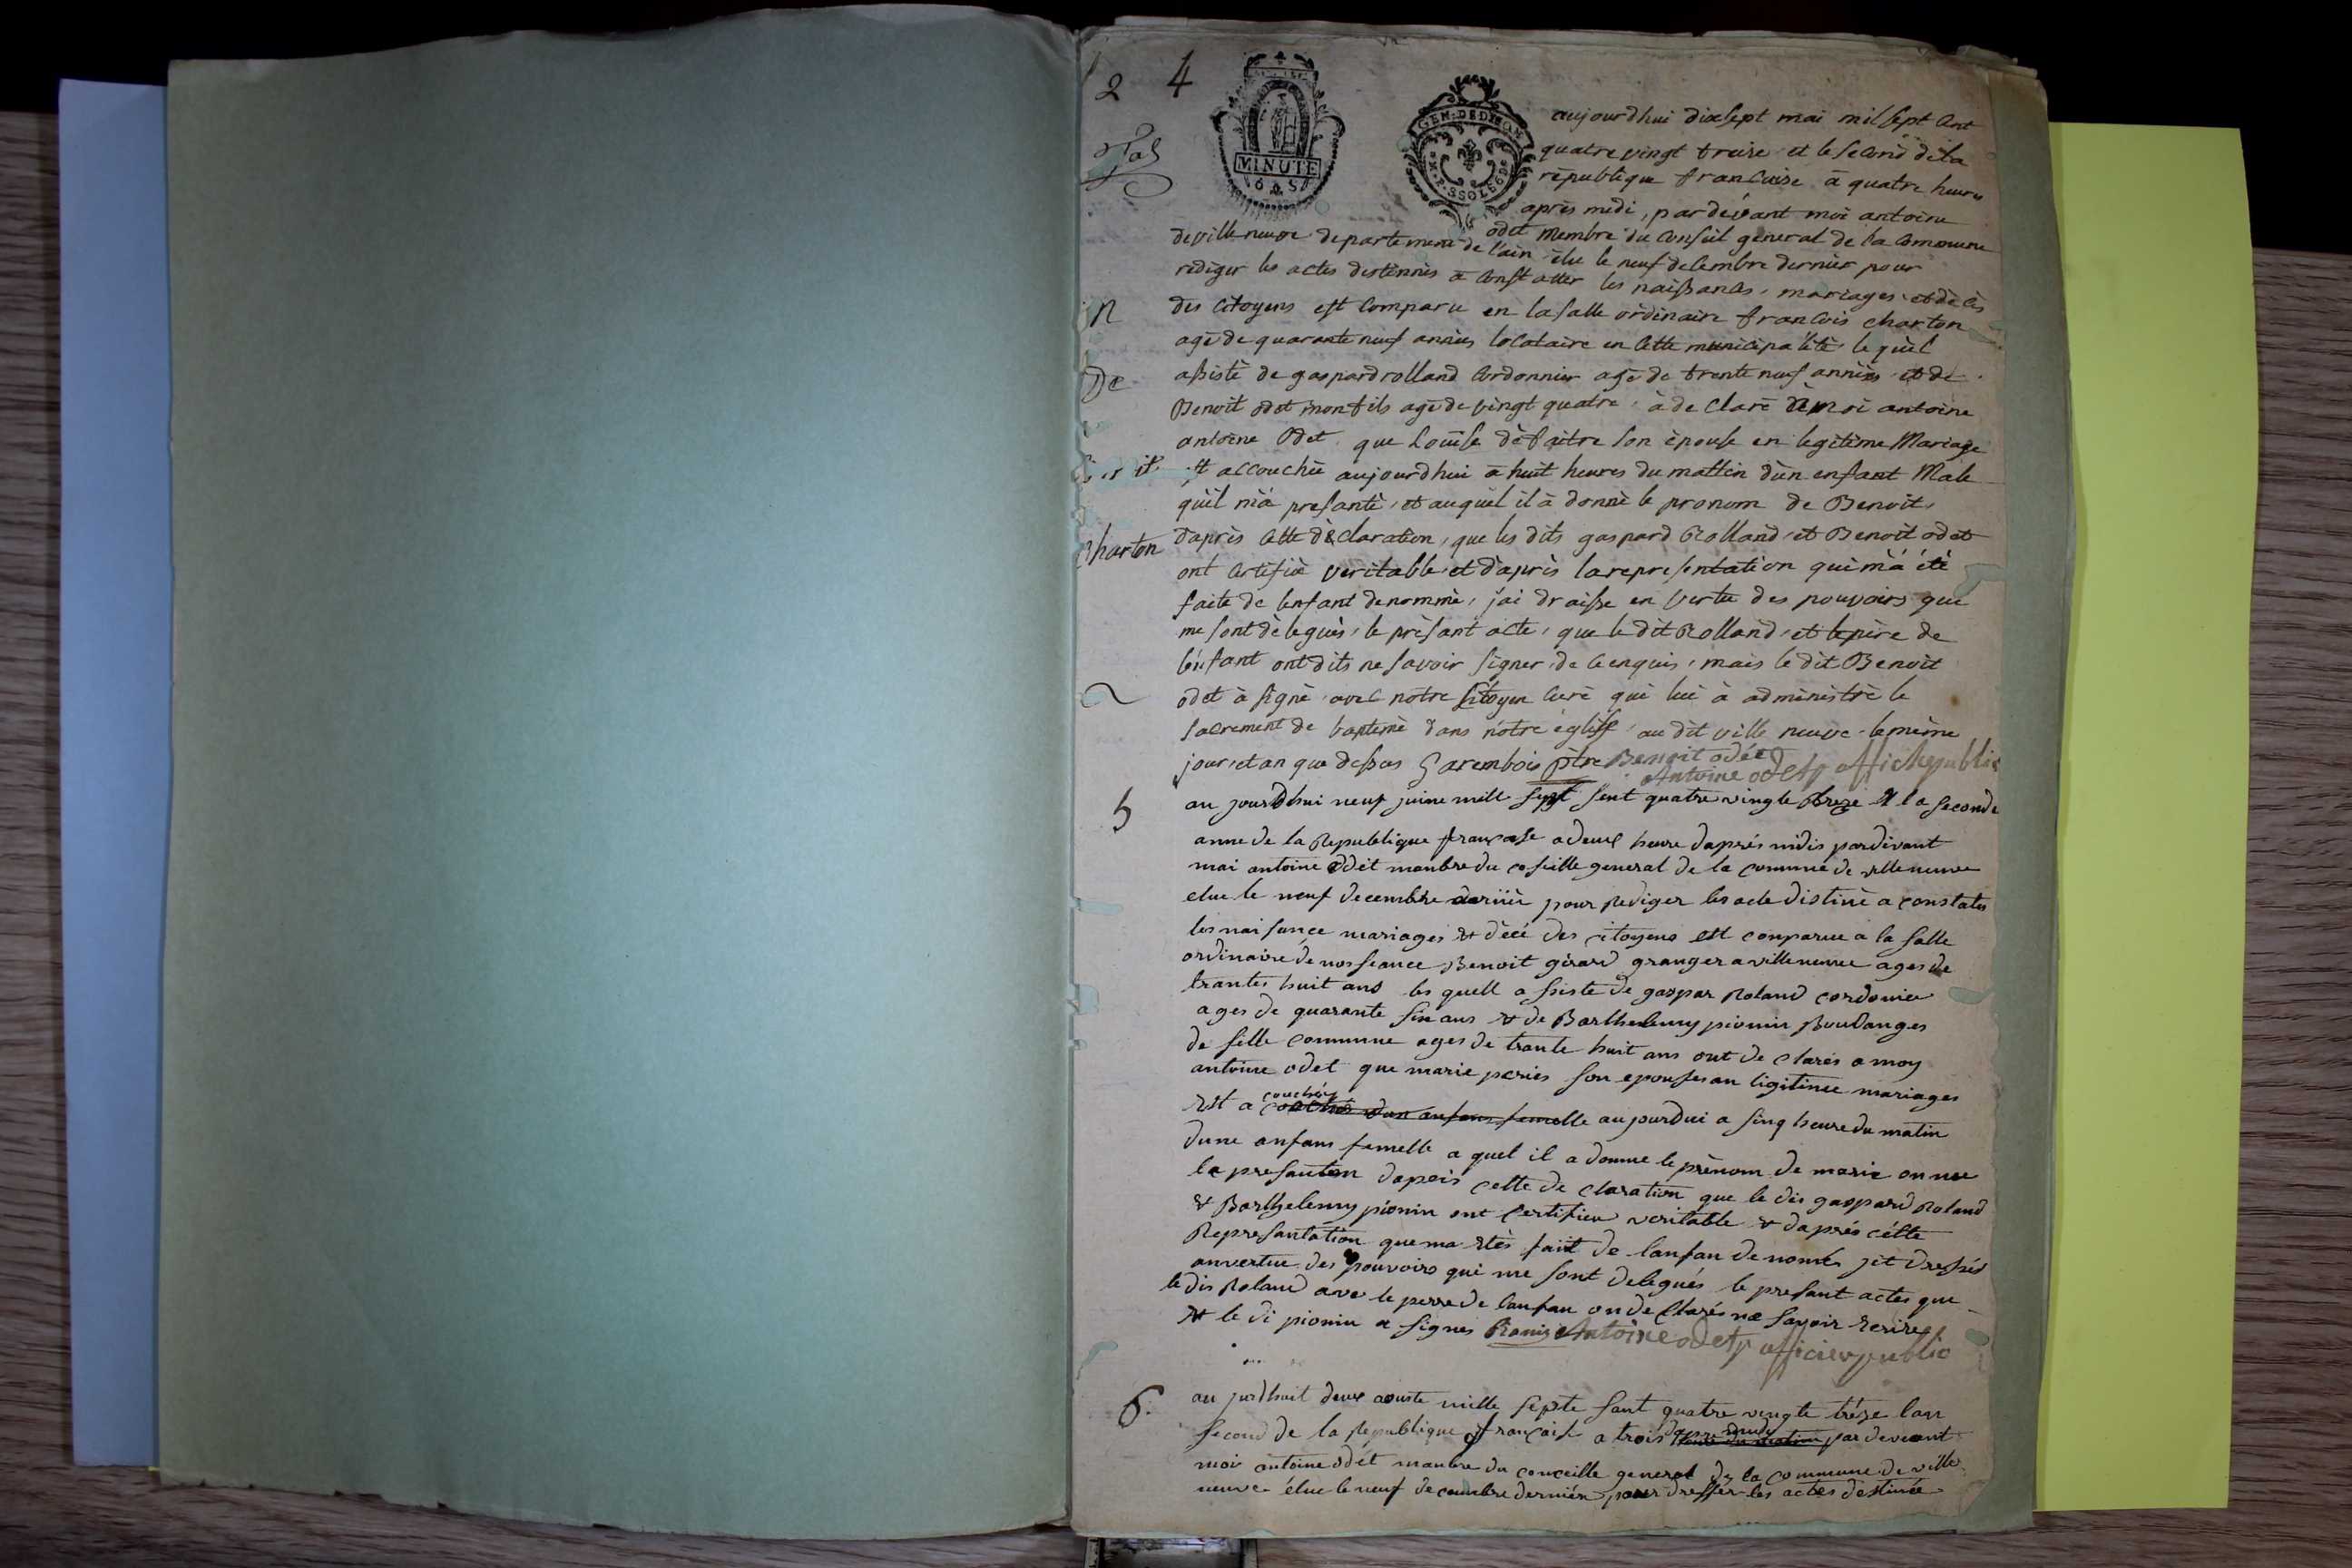 2 4
MINUTE
GEN. DE DIJON
aujourdhui dixsept mai mil sept cent
quatre vingt treise et le second dela
republique francaise a quatre heures
apres medi, pardevant moi antoine
odet membre du conseil general de la commune
de villeneuve departement de l'ain elu le neuf decembre dernier pour
rediger les actes destinnés a constatter les naissances, mariages et décès
n
des citoyens est comparu en la salle ordinaire francois charton
agé de quarante neuf annees locataire en cette municipalité lequel
De
assisté de gaspard rolland cordonnier agé de trente neuf années et de
Benoit odet mon fils agé de vingt quatre à de claré à moi antoine
antoine odet que Louise defaitre son épouse en legitime Mariage
est accouchée aujourdhui a huit heures du mattin d'un enfant Male
qu'il m'a presanté, et auquel il à donné le pronom de Benoit,
charton
dapres cette declaration, que les dits gaspard Rolland et Benoit odet
ont certifié veritable et d'après la representation qui m'a été
faite de l'enfant denommé, j'ai draisse en vertu des pouvoirs que
me sont delegués, le présant acte, que le dit Rolland et le père de
l'enfant ont dits ne savoir signer de ce enquis, mais le dit Benoit
odet à signé avec notre citoyen curé qui lui à administré le
sacrement de baptème dans notre église au dit ville neuve le même
jour et an que dessus Garembois ptre Benoit odét
Antoine odet officie public
5
au jourdhui neuf juine mill sept sent quatre vingle treze et la seconde
anne de la Republique françase a deux heure daprés midis pardevant
moi antoine odet manbre du coseille general de la commune de villeneuve
elue le neuf decembre dernier pour rediger les acte distiné a constates
les naisance mariages et décé des citoyens est conparue a la salle
ordinaire de nos seance Benoit girard granger a villeneuve ages de
trantes huit ans les quell assiste de gaspar Roland cordonier
ages de quarante six ans et de Barthelemy pionin Boulanges
de sette commune ages de trante huit ans ont de clares a moy
antoine odet que marie peries son epouses an ligitime mariages
couchéz
est a couchés dun anfans femelle aujourdui a sinq heure du matin
dune anfans femelle a quel il a donne le prènom de marie on nee
la presanten dapeis cette de claration que le dis gaspard Roland
et Barthelemy pionin ont certifien veritable et daprés cétte
Represantation que ma étés faiit de lanfan denomés jét dressés
anvertue des pouvoirs qui me sont delegués le presant actes que
le dis Roland ave le perre de lanfan on de clarés ne savoir ecrires
et le di pionin a signes Pionin Antoine odet officier public
6.
au jurdhuit deux aouste mille septe sant quatre vingte tréze lan
second de la Republique français a trois heure du matin pardeveant
moi antoine odét manbre du conceille general de la commune de ville
neuve élue le neuf decembre derniér pour dressér les actes destinée